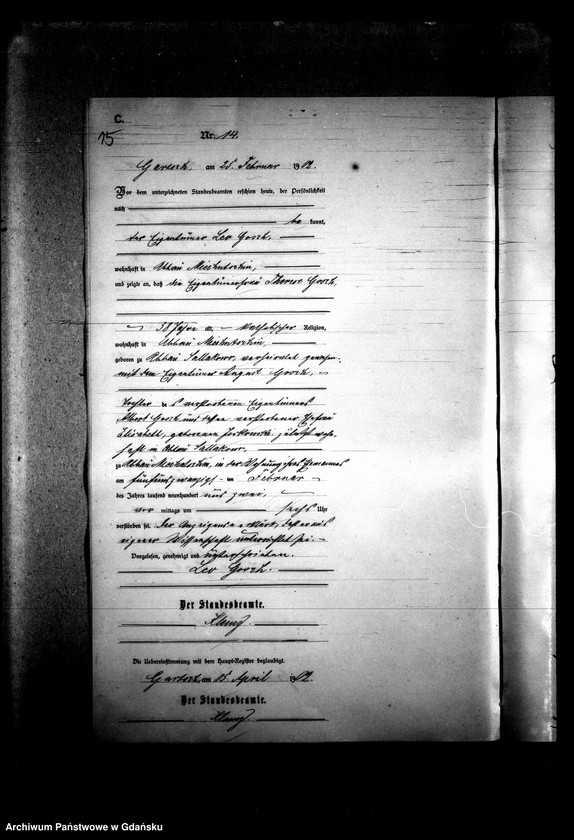 C.
15
Nr. 14.
am 25. Februar 1902.
Vor dem unterzeichneten Standesbeamten erschien heute, der Persönlichkeit
nach
be kannt,
der Eigentümer Leo Gosch,
wohnhaft in Abbau Mischutschin,
und zeigte an, daß die Eigentümerfrau Therese Gosch,
58 Jahre a, katholischer Religion,
wohnhaft in Abbau Mischutschin,
geboren zu Abbau Sullakowo, verheiratet gewesen
mit dem Eigentümer August Gosch,
Tochter des verstorbenen Eigentümers
Albert Gosch und seiner verstorbenen Ehefrau
Elisabeth, geborenen zuletzt wohn-
haft in Abbau Sullakowo,
zu Abbau Mischutschin, in der Wohnung ihres Ehemannes
am fünfundzwanzigsten Februar
des Jahres tausend neunhundert und zwei,
vor mittags um sechs Uhr
verstorben sei. Der Anzeigende erklärt, daß er aus
eigener Wissenschaft unterrichtet sei.
Vorgelesen, genehmigt und unterschrieben.
Leo Gosch.
Der Standesbeamte.
Die Uebereinstimmung mit dem Haupt-Register beglaubigt.
am 15. April 1902.
Der Standesbeamte.
Archiwum Państwowe w Gdańsku